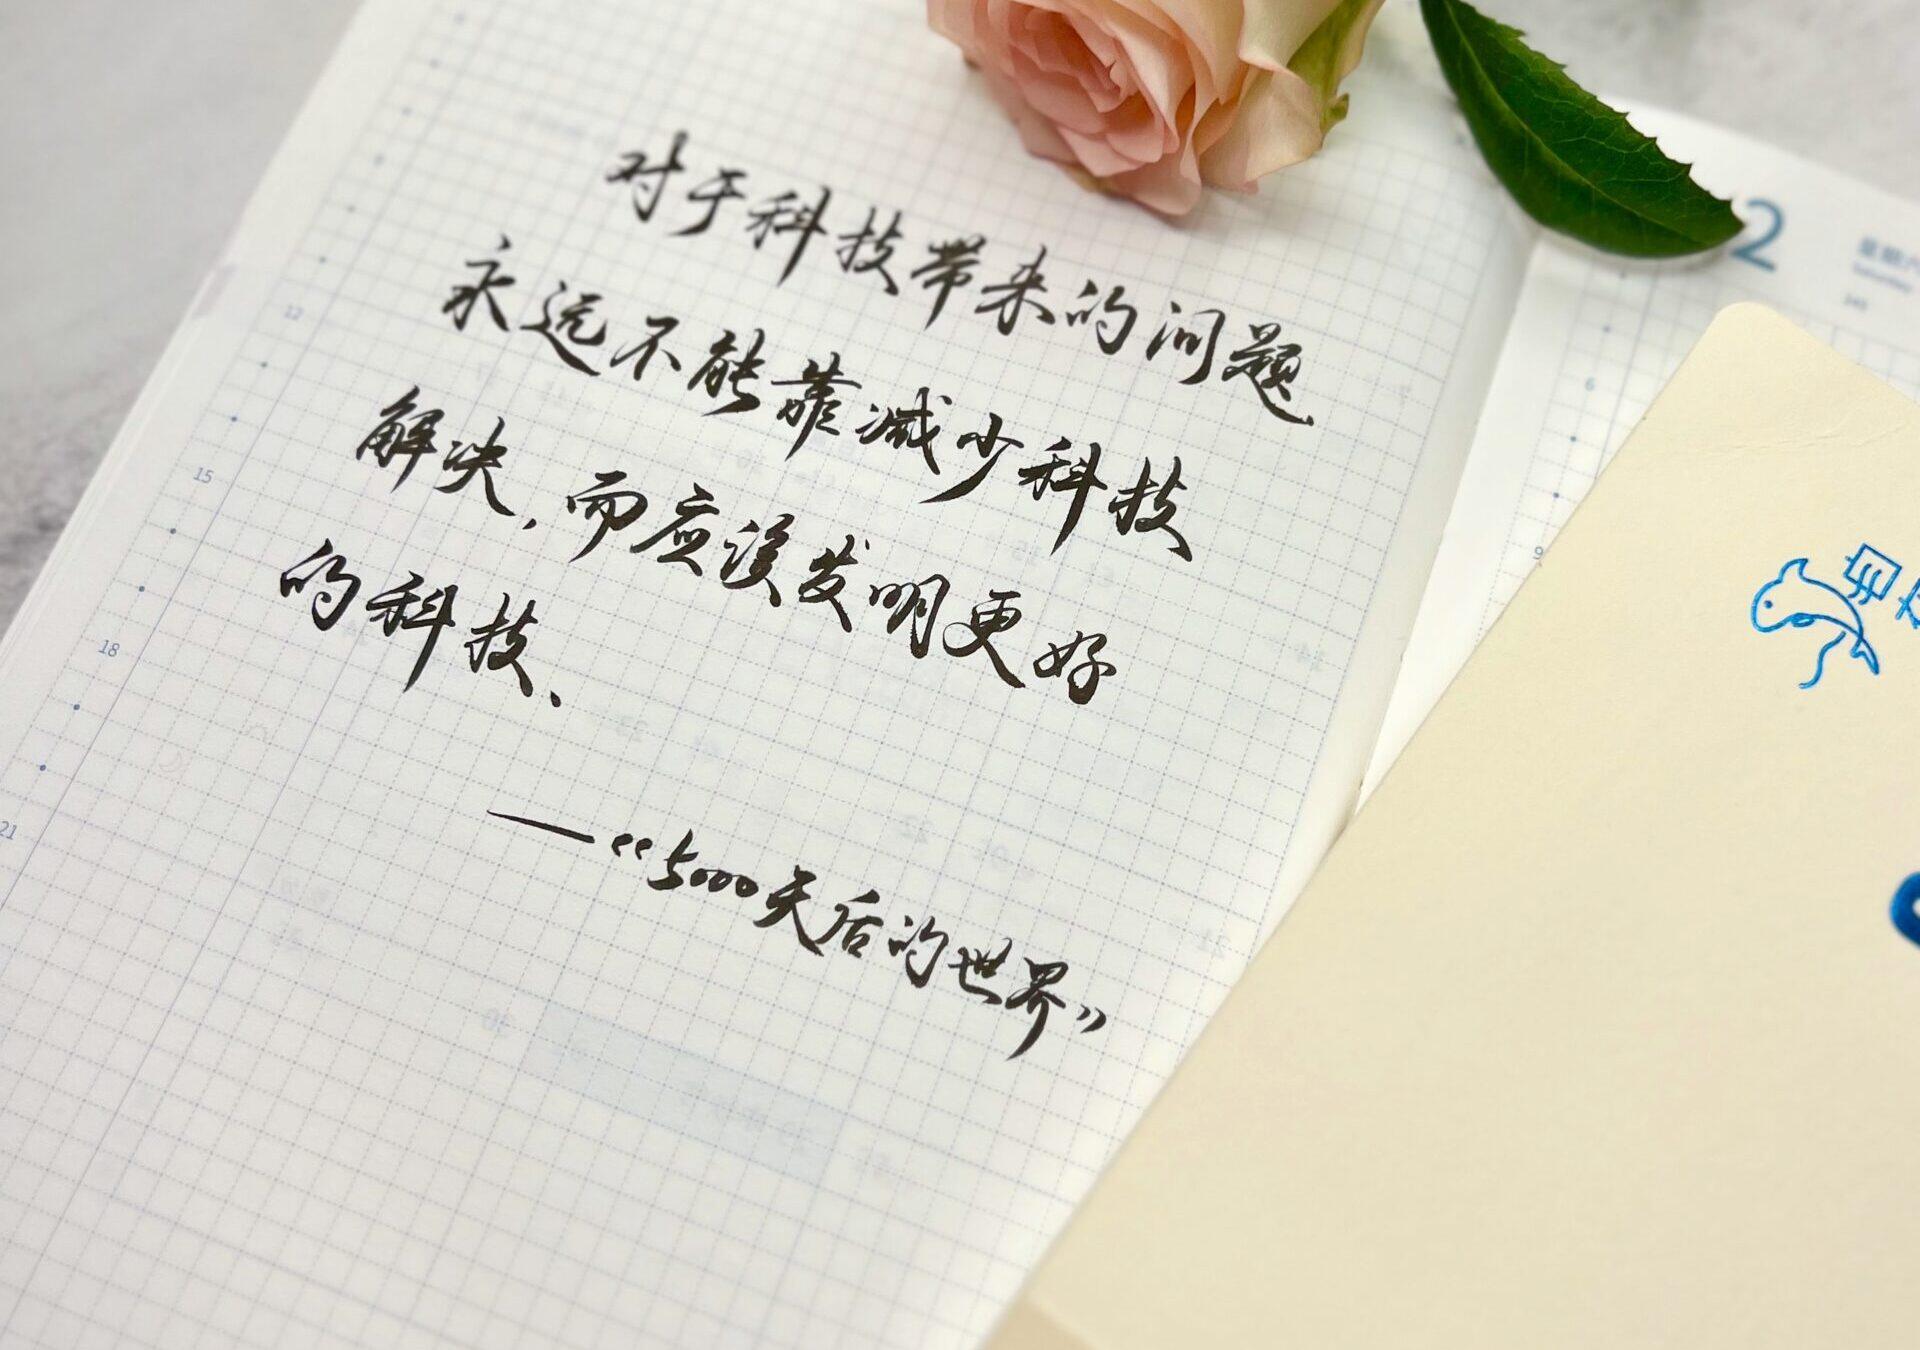 对于科技带来的问题
永远不能靠减少科技
解决,而应该发明更好
的科技、
——《5000天后的世界》
12
15
18
21
2
6
9